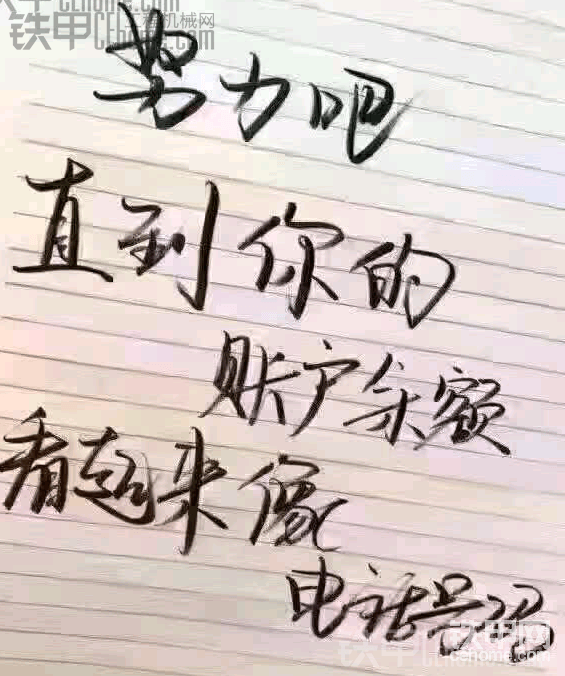 铁甲工程机械网
CEhome.com
努力吧
直到你的
账户余额
看起来像
电话号码
铁甲网
cehome.com